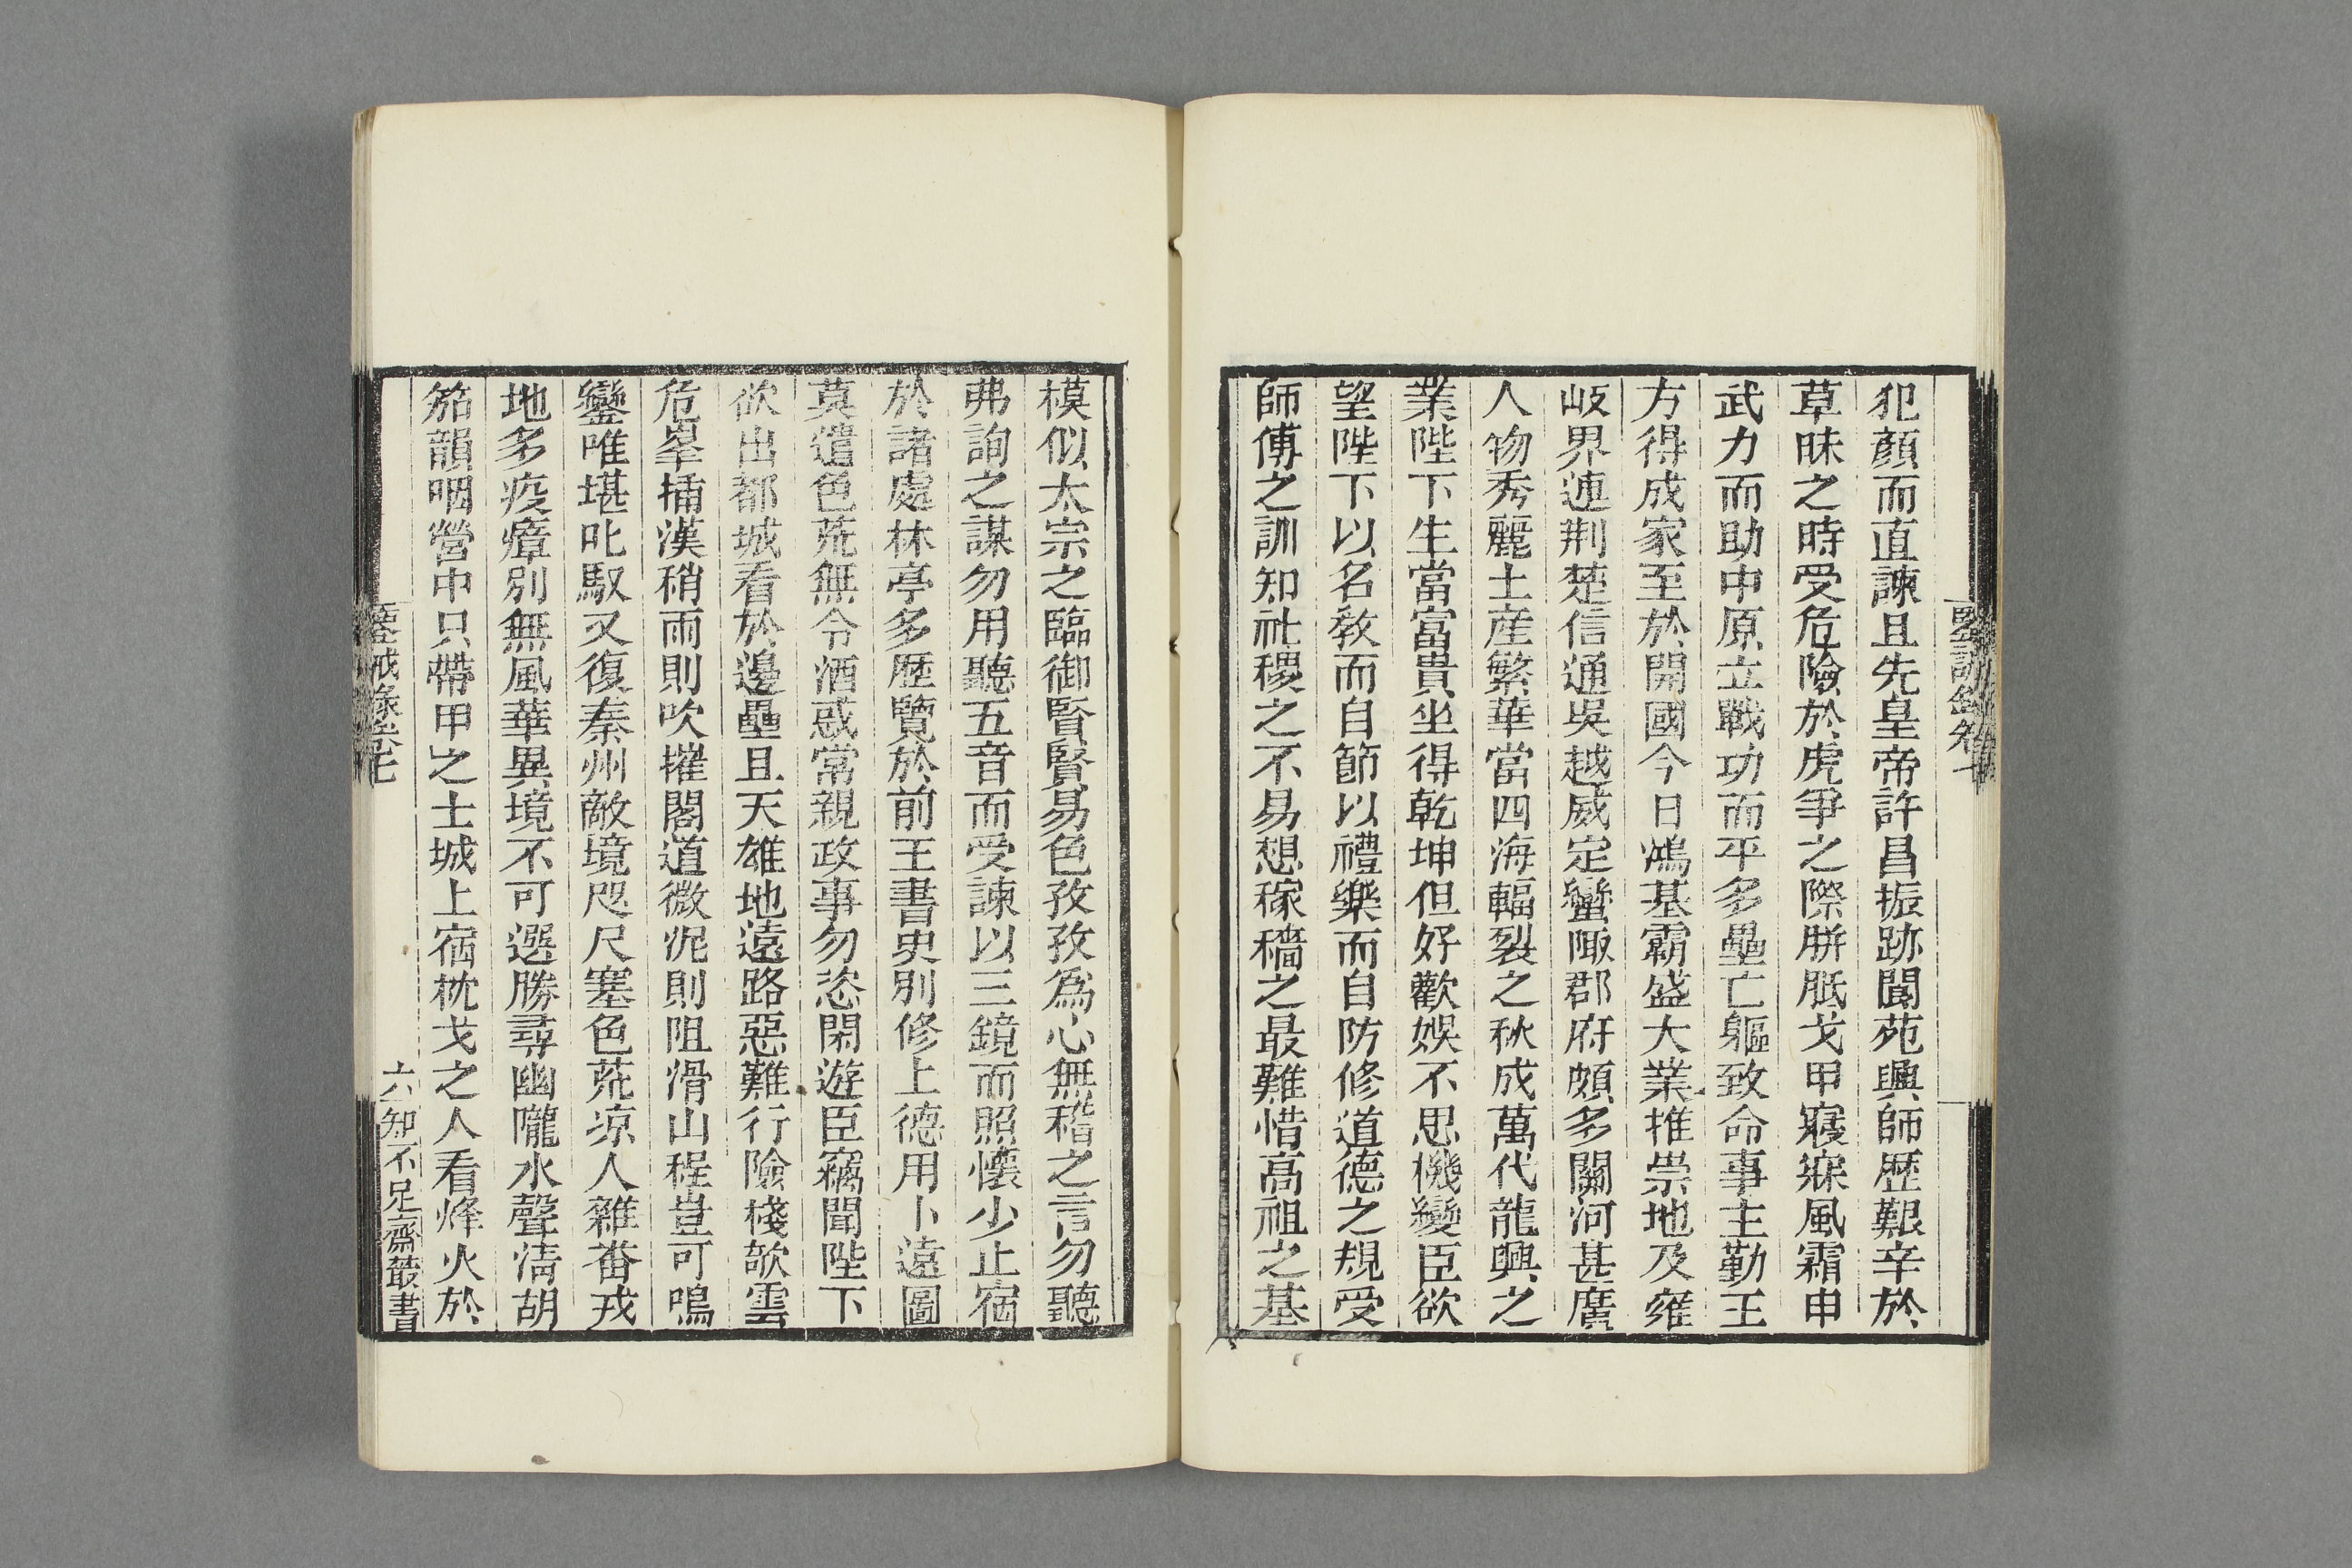 犯顏而直諫且先皇帝許昌振跡閬苑興師歷艱辛於
草昧之時受危險於虎爭之際胼胝戈甲寢寐風霜申
武力而助中原立戰功而平多壘亡軀致命事主勤王
方得成家至於開國今日鴻基霸盛大業推崇地及雍
岐界連荆楚信通吳越威定蠻陬郡府頗多關河甚廣
人物秀麗土産繁華當四海輻裂之秋成萬代龍興之
業陛下生當富貴坐得乾坤但好歡娛不思機變臣欲
望陛下以名教而自節以禮樂而自防修道德之規受
師傅之訓知社稷之不易想稼穡之最難惜高祖之基
模似太宗之臨御賢賢易色孜孜爲心無稽之言勿聽
弗詢之謀勿用聽五音而受諫以三鏡而照懷少止宿
於諸處林亭多歷覽於前王書史別修上德用卜遠圖
莫遣色荒無令酒惑常親政事勿恣閑遊臣竊聞陛下
欲出都城看於邊壘且天雄地遠路惡難行險棧欹雲
危峯插漢稍雨則吹摧閣道微泥則阻滑山程豈可鳴
鑾唯堪叱馭又復秦州敵境咫尺塞色荒凉人雜畨戎
地多疫瘴別無風華異境不可選勝尋幽隴水聲淸胡
笳韻咽營中只帶甲之士城上宿枕戈之人看烽火於
鑒戒錄卷七
六
知不足齋叢書